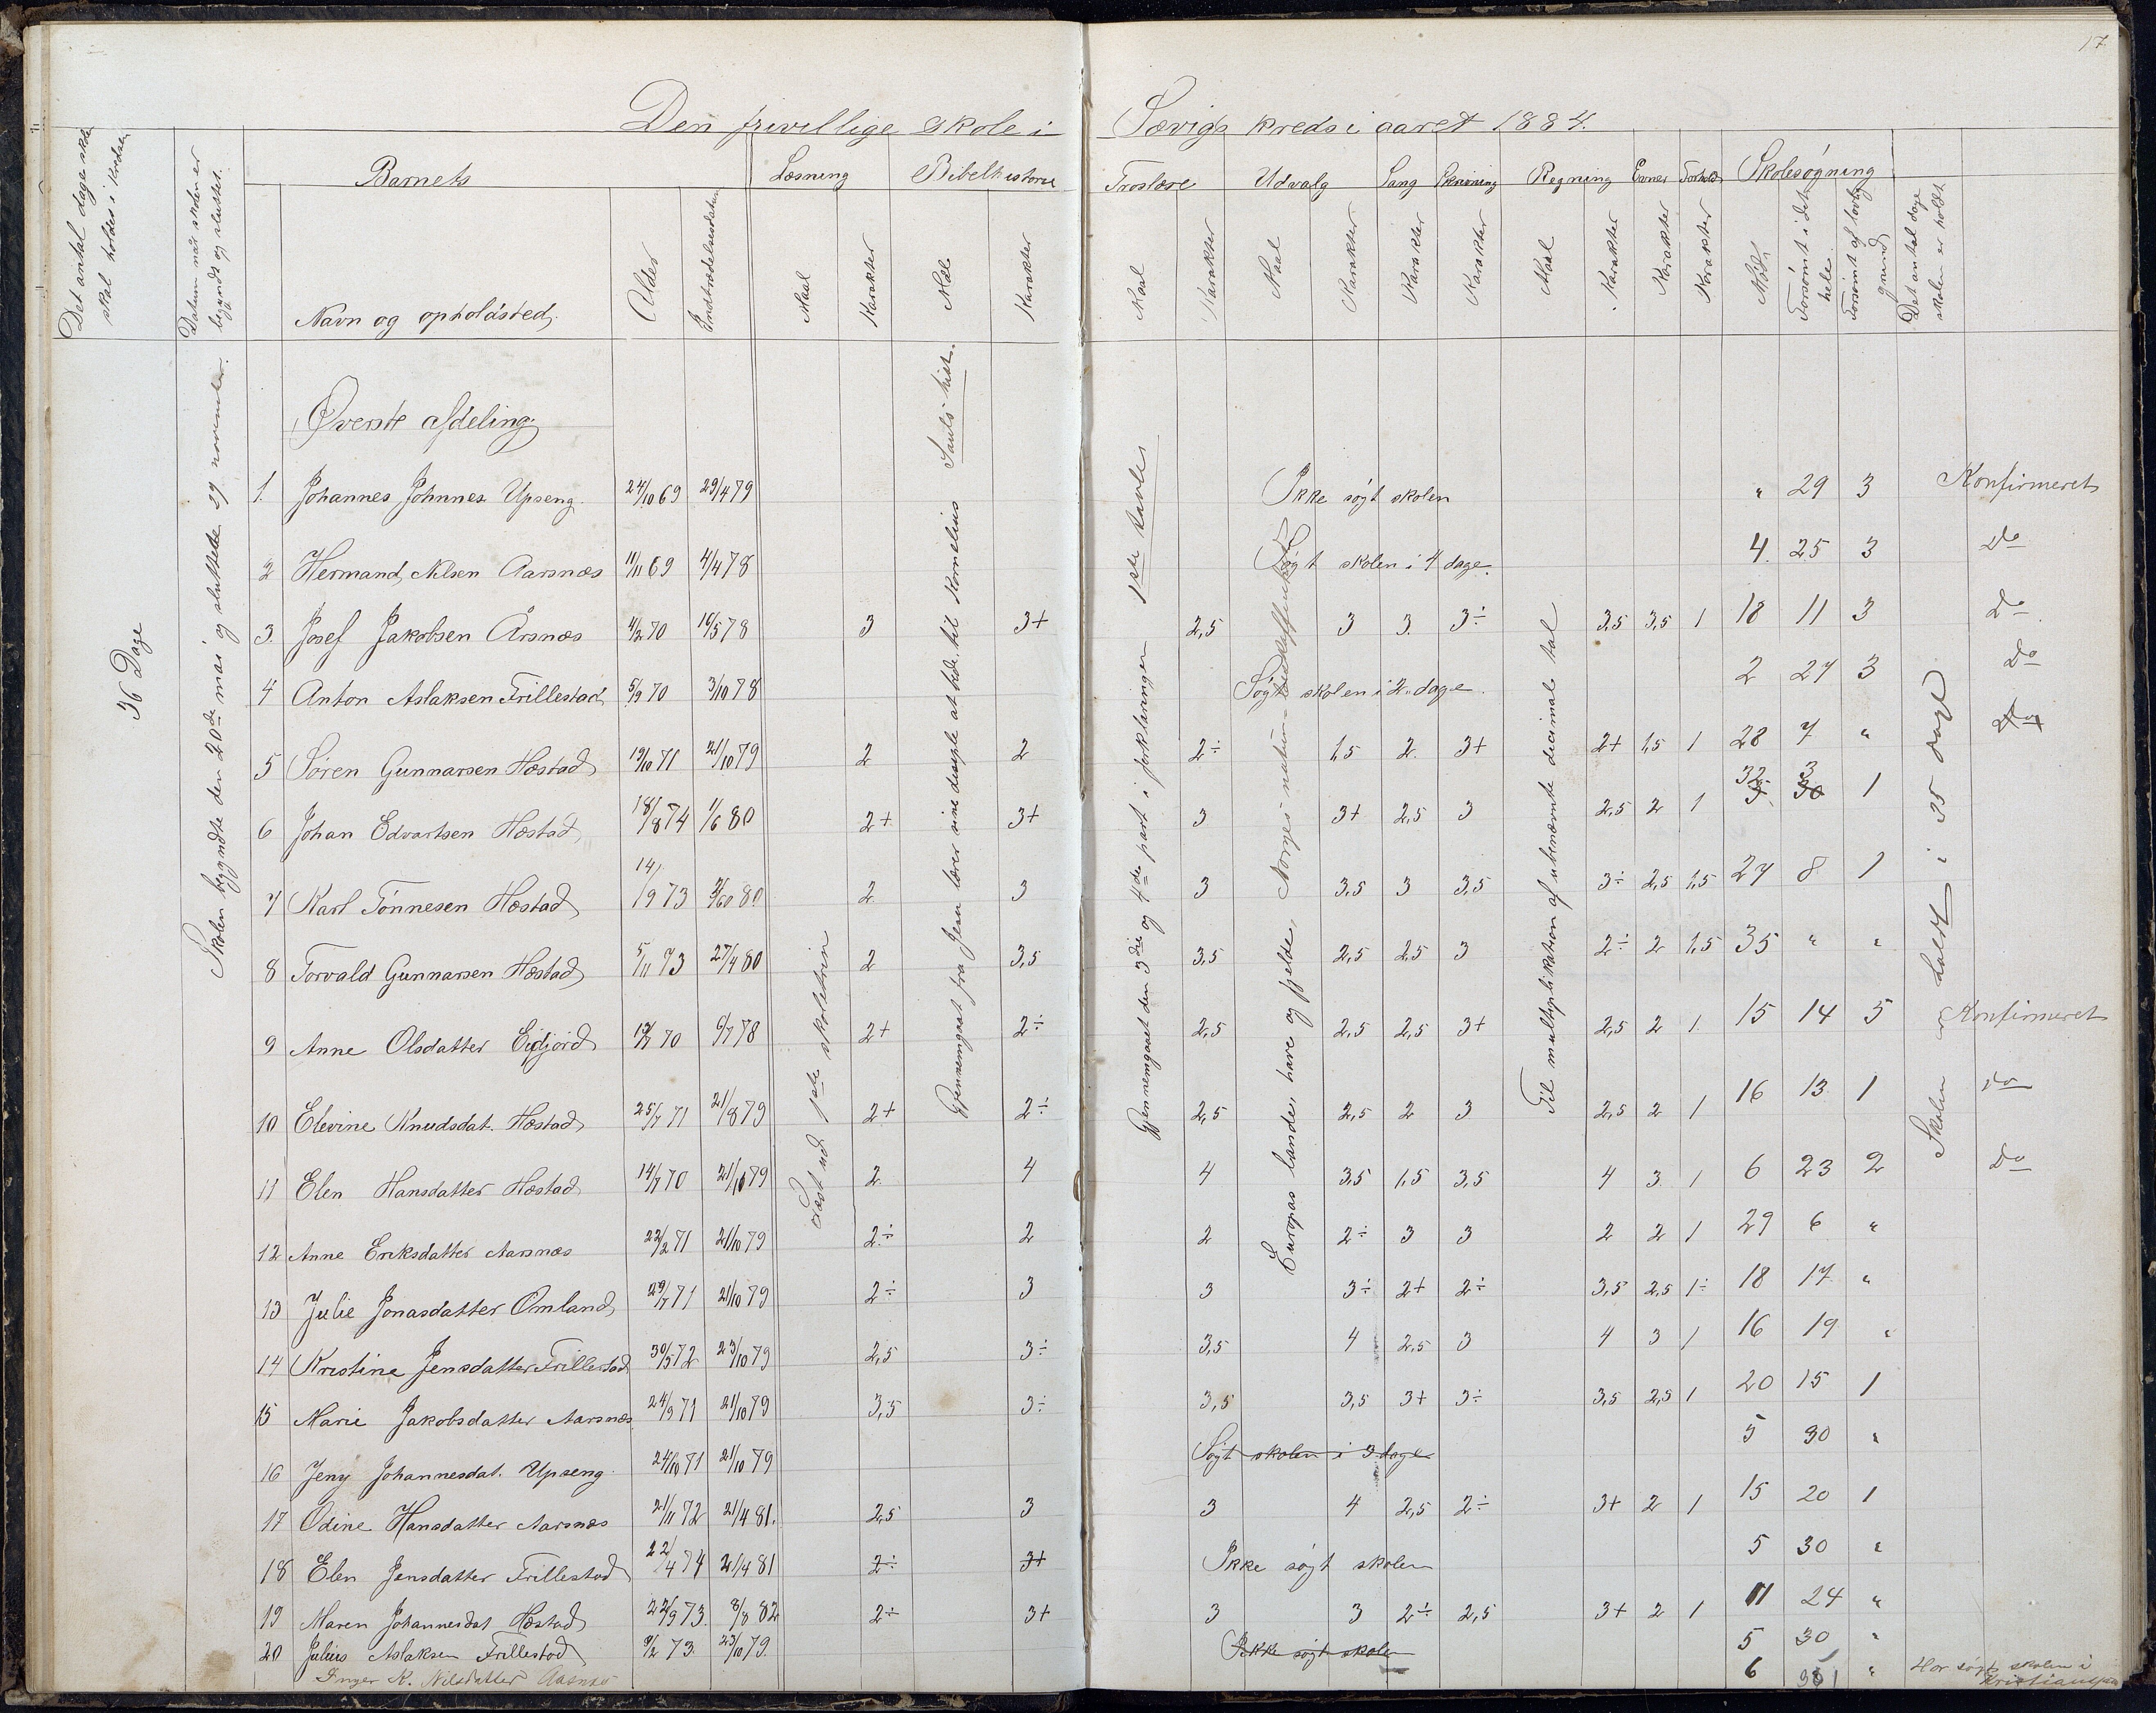 17
Den frivillige skole i Sævigs kreds i aaret 1884.
Det antal dage skolen skal holdes i kredsen
Datum når skolen er begyndt og sluttet.
Barnets
Læsning
Bibelhistorie
Troslære
Udvalg
Sang
Skrivning
Regning
Evner
Forhold
Skolesøgning
Navn og opholdssted.
Alder
Indtrædelsesdatum
Maal
Karakter
Mål
Karakter
Maal
Karakter
Maal
Karakter
Karakter
Karakter
Maal
Karakter
Karakter
Karakter
Mødt
Forsømt i det hele
Forsømt af lovlig grund
Det antal dage skolen er holdt
36 Dage
Skolen begyndte den 20de mai og sluttede 29 november.
Læst ud 1ste skoletrin
Gjennemgaat fra Jesu lærer sine disciple at bede, til Kornelius Sauls hist.
Gjennemgaaet den 3die og 4de part i forklaringen 1ste tavles
Europas lande, have og fjelde, Norges natur
Til multiplikation af ubenævnte decimal tal
Skolen holdt i 35 dage
Øverste afdeling
1. Johannes Johnnes. Upseng. 24/10 69 29/4 79 Ikke søgt skolen " 29 3 Konfirmeret
2 Hermand Nilsen Aarsnæs 11/11 69 4/4 78 Søgt skolen i 4 dage. 4. 25 3 Do
3. Josef Jakobsen Årsnæs 4/2 70 16/5 78 3 3+ 2,5 3 3. 3÷ 3,5 3,5 1 18 11 3 Do
4 Anton Aslaksen Frillestad 5/9 70 3/10 78 Søgt skolen i 2 dage. 2 27 3 Do
5 Søren Gunnarsen Hæstad 19/10 71 21/10 79 2 2 2÷ 1,5 2. 3+ 2+ 1,5 1 28 7 " Do
6 Johan Edvartsen Hæstad 18/8 74 1/6 80 2+ 3+ 3 3+ 2,5 3 2,5 2 1 32 3 1
7 Karl Tønnesen Hæstad 14/9 73 80 2 3 3 3,5 3 3,5 3÷ 2,5 1,5 27 8 1
8 Torvald Gunnarsen Hæstad 5/11 73 27/4 80 2 3,5 3,5 2,5 2,5 3 2÷ 2 1,5 35 " "
9 Anne Olsdatter Eidjord 70 6/7 78 2+ 2÷ 2,5 2,5 2,5 3+ 2,5 2 1. 15 14 5 Konfirmeret
10 Elevine Knudsdat. Hæstad 25/7 71 21/8 79 2+ 2÷ 2,5 2,5 2 3 2,5 2 1 16 13 1 Do
11 Elen Hansdatter Hæstad 14/7 70 21/10 79 2. 4 4 3,5 1,5 3,5 4 3. 1 6 23 2 Do
12 Anne Eriksdatter Aarsnæs 22/2 71 21/10 79 2÷ 2 2 2÷ 3 3 2 2 1 29 6 "
13 Julie Jonasdatter Omland 29/7 71 21/10 79 2÷ 3 3 3÷ 2+ 2÷ 3,5 2,5 1÷ 18 17 "
14 Kristine Jensdatter Frillestad 30/5 72 23/10 79 2,5 3÷ 3,5 4 2,5 3 4 3 1 16 19 "
15 Marie Jakobsdatter Aarsnæs 24/9 71 21/10 79 3,5 3÷ 3,5 3,5 3+ 3÷ 3,5 2,5 1 20 15 1
16 Jeny Johannesdat. Upseng. 24/10 71 21/10 79 Søgt skolen i 3 dage 5 30 "
17 Odine Hansdatter Aarsnæs 21/11 72 21/4 81. 2,5 3 3 4 2,5 2÷ 3+ 2 1 15 20 1
18 Elen Jensdatter Frillestad 22/4 74 21/4 81 2÷ 3+ Ikke søgt skolen 5 30 "
19 Maren Johannesdat Hæstad 22/9 73. 8/8 82 2÷ 3+ 3 3 2÷ 2,5 3+ 2 1 11 24 "
20 Julius Aslaksen Frillestad 9/2 73. 23/10 79. Ikke søgt skolen 5 30 "
Inger K. Nilsdatter Aasnæs 6 " Har søgt skolen i Kristiansand